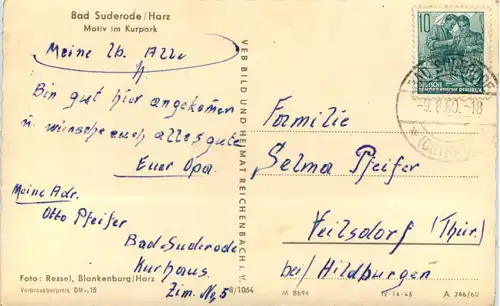 Bad Suderode/Harz
Motiv im Kurpark
Meine lb. Alle
Bin gut hier angekomen
u. wünsche euch alles gute
Euer Opa.
Meine Adr.
Otto Pfeifer
Bad-Suderode
Kurhaus
Zim. No 5
Foto: Ressel, Blankenburg/Harz
Verbraucherpreis DM -,15
8/1064
VEB BILD UND HEIMAT REICHENBACH I. V.
10
DEUTSCHE
DEMOKRATISCHE REPUBLIK
Familie
Selma Pfeifer
Veilsdorf (Thür.)
bei/Hildburgen
M 8694
IV-14-45
A 246/60